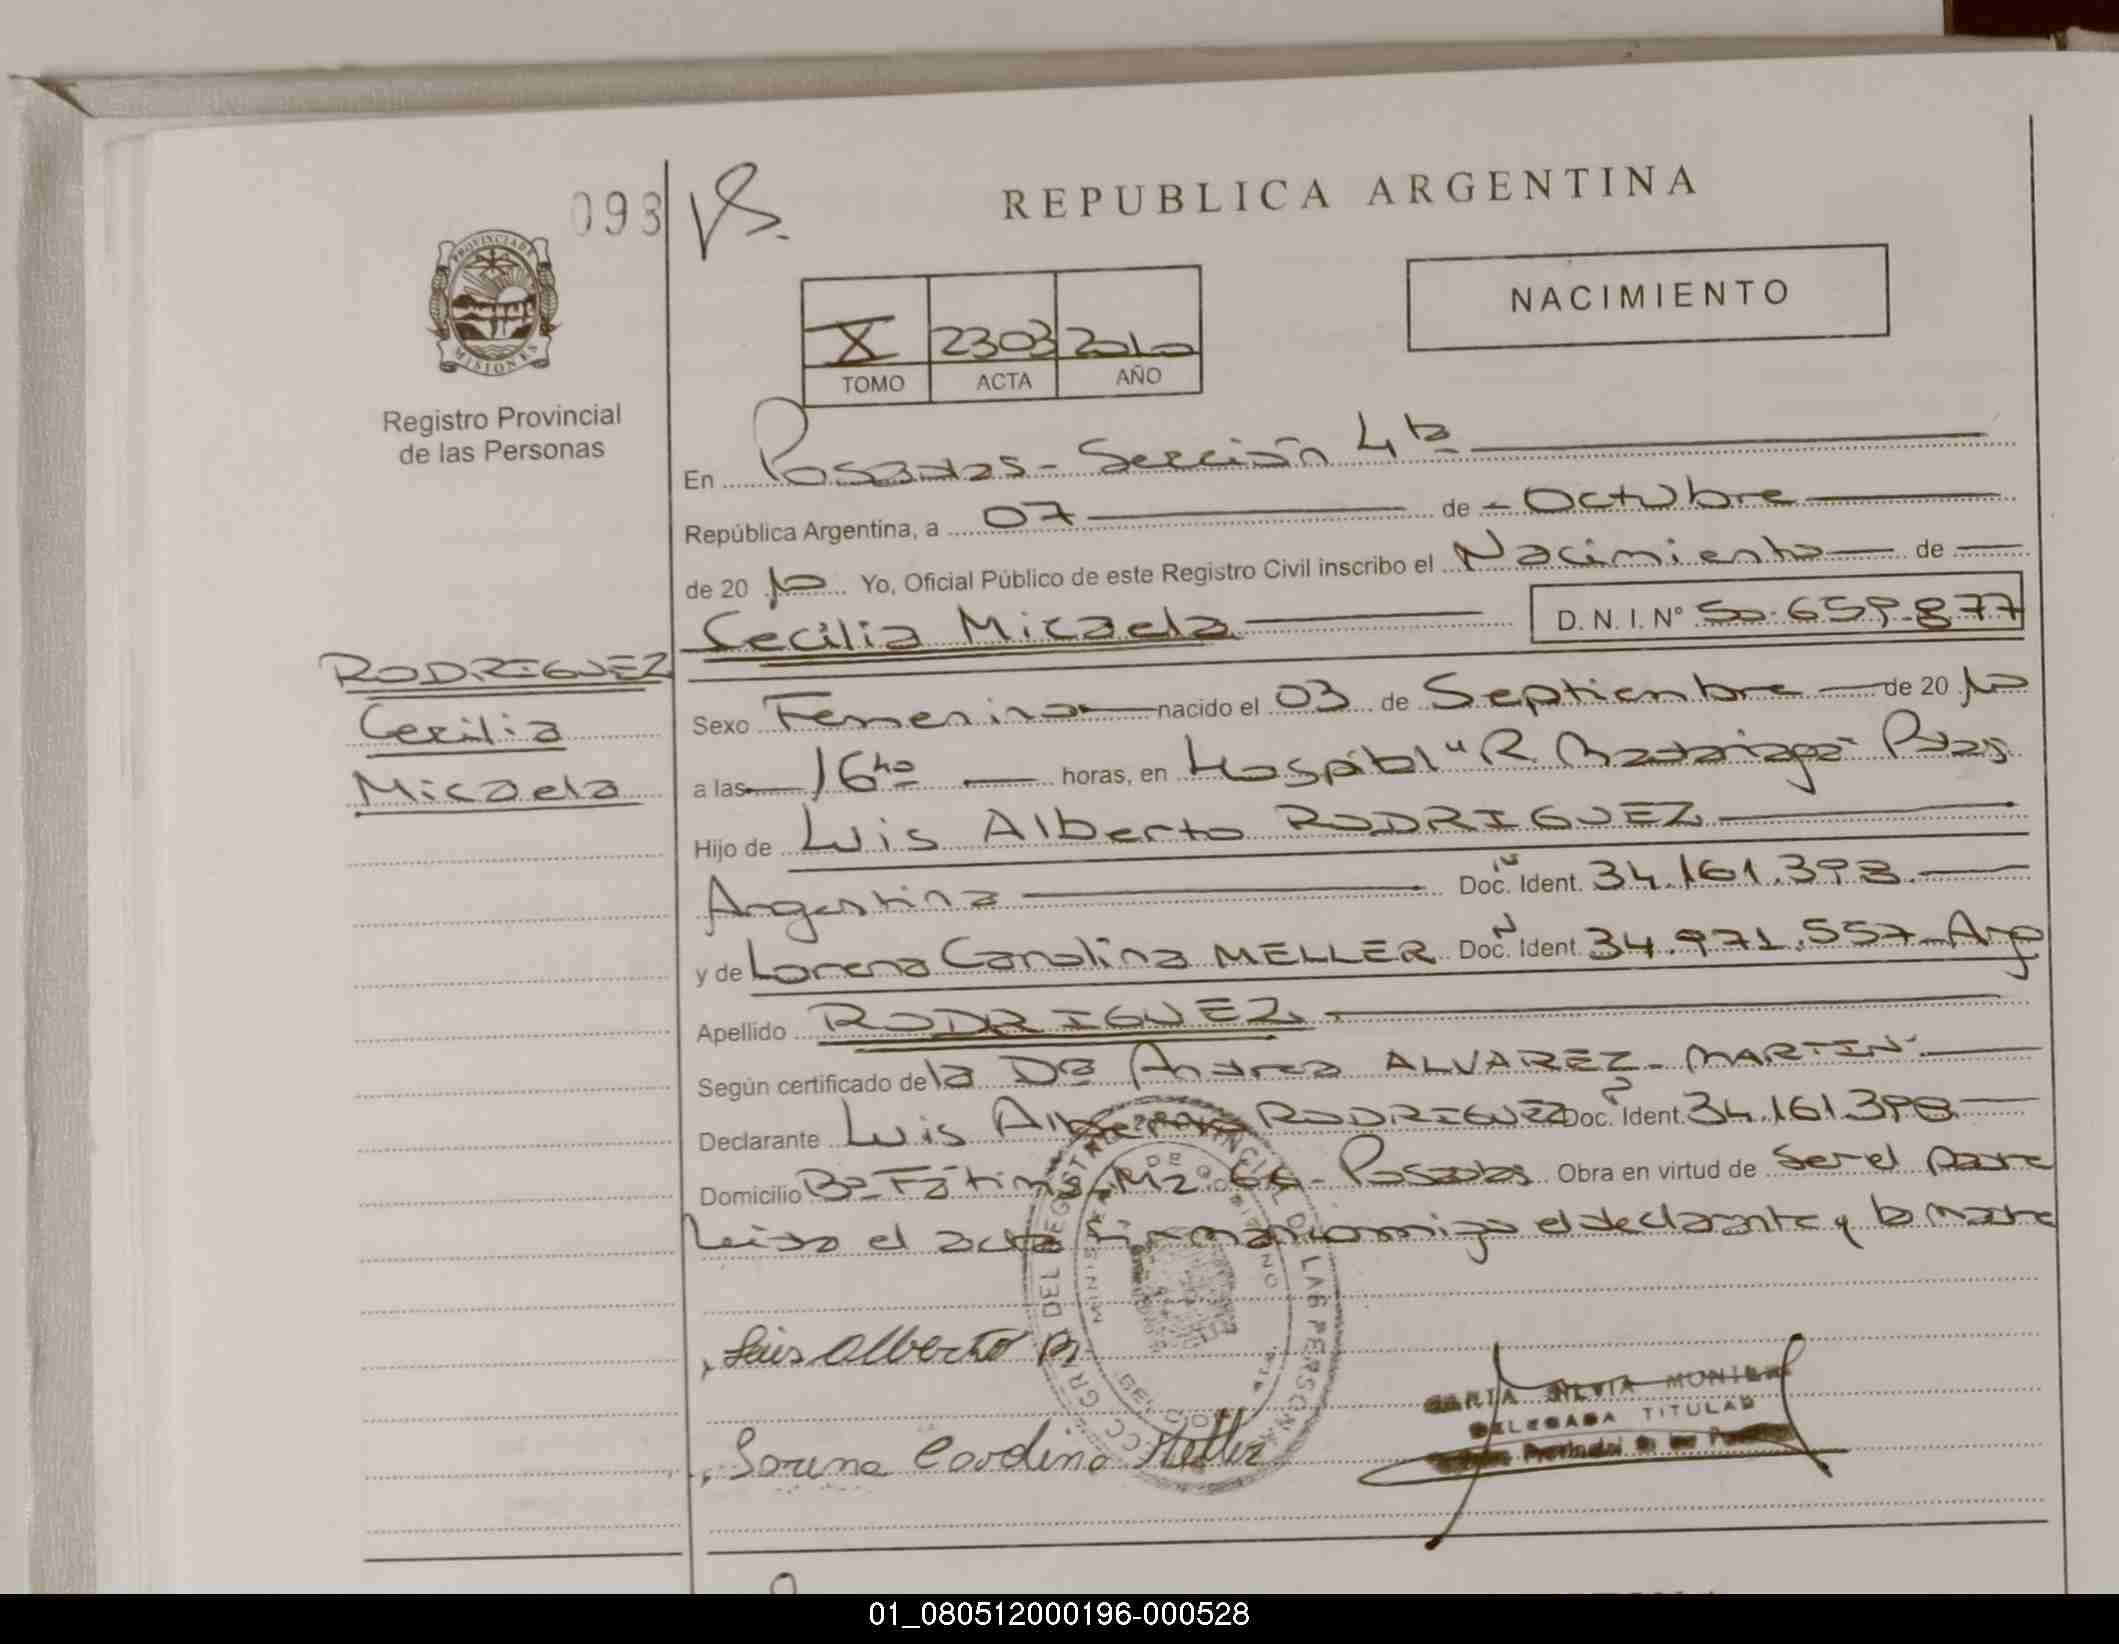 REPUBLICA ARGENTINA
093
PROVINCIA DE
MISIONES
NACIMIENTO
X 2303 2010
TOMO ACTA AÑO
Registro Provincial
de las Personas
En Posadas - Sección 4ta
República Argentina, a 07 de Octubre
de 20 10 Yo, Oficial Público de este Registro Civil inscribo el Nacimiento de
Cecilia Micaela D. N. I. Nº 50.659.877
RODRIGUEZ
Cecilia
Micaela
Sexo Femenino nacido el 03 de Septiembre de 20 10
a las 16hs horas, en Hospital "R. Madariaga" Pdas
Hijo de Luis Alberto RODRIGUEZ
Argentina Doc. Ident. 34.161.398.
y de Lorena Carolina MELLER Doc. Ident. 34.971.557 Arg
Apellido RODRIGUEZ
Según certificado de la Dra Andrea ALVAREZ - MARTIN
Declarante Luis Alberto RODRIGUEZ Doc. Ident. 34.161.398
Domicilio Bº Fátima Mz 66 - Posadas Obra en virtud de ser el padre
Leida el acta firman conmigo el declarante y la madre
Luis Alberto R
Lorena Carolina Meller
MARIA SILVIA
DELEGADA TITULAR
01_080512000196-000528